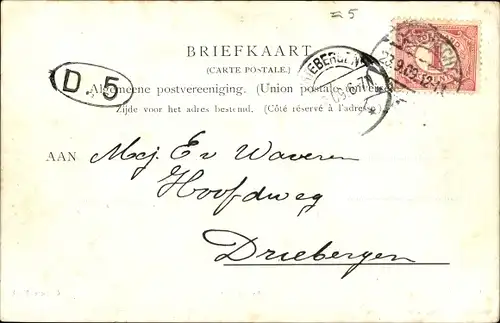 =5
BRIEFKAART
(CARTE POSTALE.)
Algemeene postvereeniging. (Union postale universelle)
Zijde voor het adres bestemd. (Côté réservé à l'adresse)
D. 5
DRIEBERGEN
1
AAN Mej. E v Waveren
Hoofdweg
Driebergen